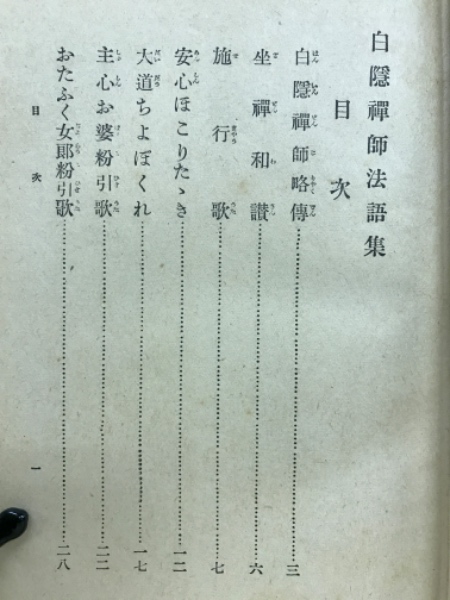 白隱禪師法語集
目次
白隱禪師略傳…………三
坐禪和讃…………六
施行歌…………七
安心ほこりたゝき…………一二
大道ちよぼくれ…………一七
主心お婆粉引歌…………二二
おたふく女郎粉引歌…………二八
目次
一